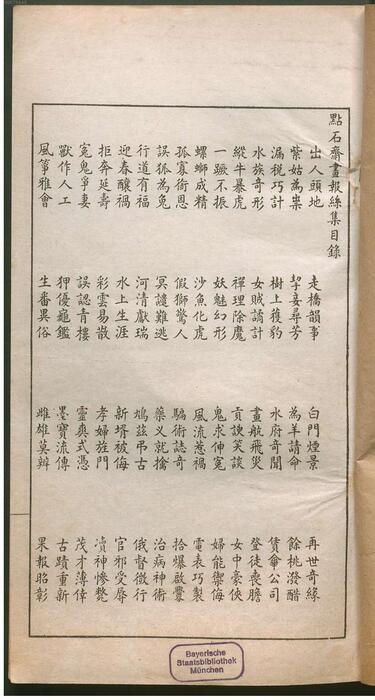 點石齋畫報絲集目錄
出人頭地 走橋韻事 白門煙景 再世奇緣
紫姑為祟 挈妾尋芳 為羊請命 餘桃潑醋
漏稅巧計 樹上獲豹 水府奇聞 賃傘公司
水族奇形 女賊譎計 畫航飛災 登徒喪膽
縱牛暴虎 禪理除魔 貢諛笑談 女中豪俠
一蹶不振 妖魅幻形 鬼求伸冤 婦能禦侮
螺螄成精 沙魚化虎 風流惹禍 電表巧製
孤寡銜恩 假獅驚人 騙術誌奇 拾爆啟釁
誤狐為兔 冥譴難逃 藥叉就擒 治病神術
行道有福 河清獻瑞 鳩茲弔古 俄督微行
迎春釀禍 水上生涯 新婿被侮 官邪受辱
拒奔延壽 彩雲易散 孝婦旌門 瀆神慘斃
冤鬼爭妻 誤認青樓 靈爽式憑 茂才薄倖
獸作人工 狎優龜鑑 墨寶流傳 古蹟重新
風箏雅會 生番異俗 雌雄莫辨 果報昭彰
Bayerische
Staatsbibliothek
München